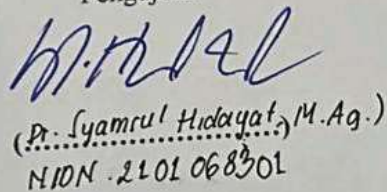 (Dr. Syamsul Hidayat, M.Ag.)
NIDN. 2101 068301